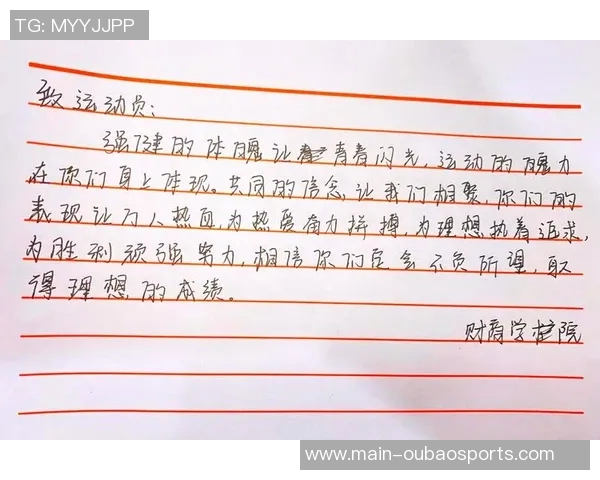 TG: MYYJJPP
致运动员：
强健的体魄让青春闪光，运动的魄力
在你们身上体现。共同的信念，让我们相聚，你们的
表现让万人热血，为热爱奋力拼搏，为理想执着追求，
为胜利顽强努力，相信你们定会不负所望，取
得理想的成绩。
财商学院
www.main-oubaosports.com